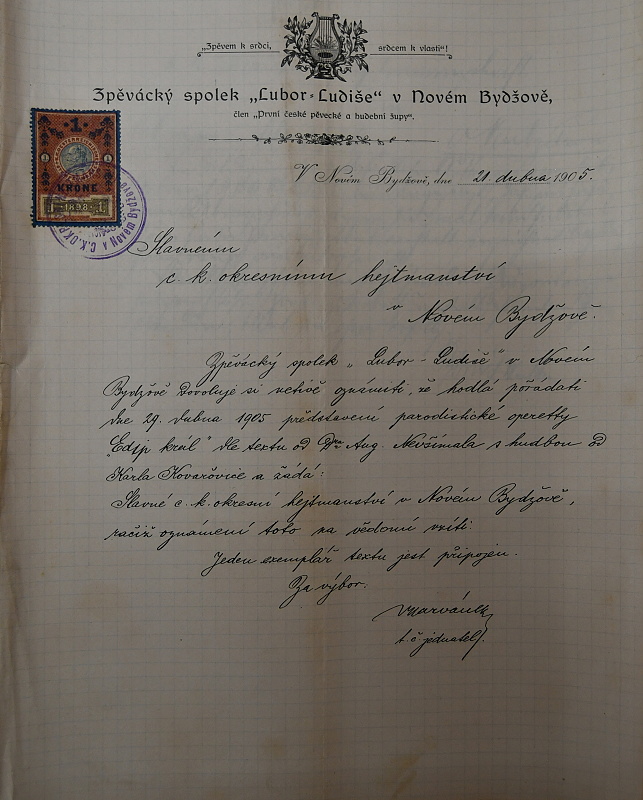 „Zpěvem k srdci, srdcem k vlasti“!
Zpěvácký spolek „Lubor-Ludiše“ v Novém Bydžově,
člen „První české pěvecké a hudební župy“.
V Novém Bydžově, dne 21 dubna 1905.
1
KRONE
1 1898 1
Slavnému
c. k. okresnímu hejtmanství
v Novém Bydžově.
Zpěvácký spolek „Lubor-Ludiše“ v Novém
Bydžově dovoluje si uctivě oznámiti, že hodlá pořádati
dne 29. dubna 1905 představení parodistické operetty
„Edip král“ dle textu od Dra Aug. Nevšímala s hudbou od
Karla Kovařovice a žádá:
Slavné c. k. okresní hejtmanství v Novém Bydžově,
račiž oznámení toto na vědomí vzíti.
Jeden exemplář textu jest připojen.
Za výbor:
t. č. jednatel.